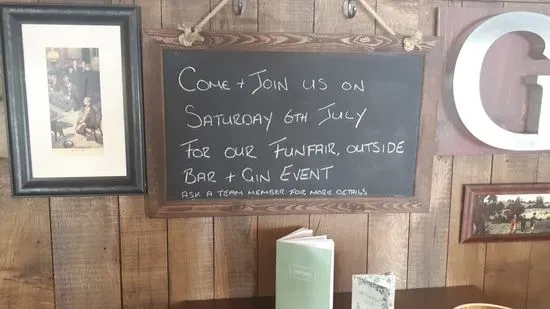 Come + Join us on
Saturday 6th July
For our Funfair, outside
Bar + Gin Event
Ask a team member for more details
G